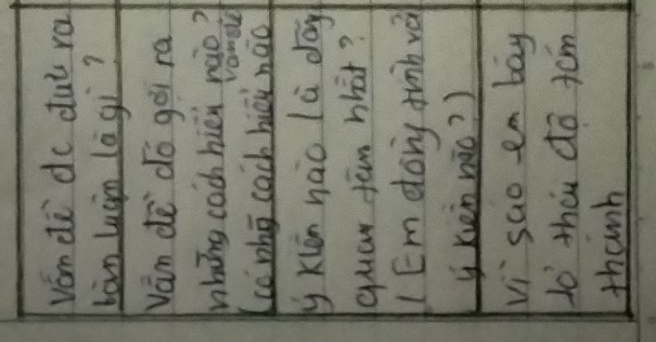 Vấn đề đc đưa ra
bàn luận là gì?
Vấn đề đó gợi ra
những cách hiểu nào?
(có nhg cách hiểu nào
vấn đề
ý kiến nào là đáng
quan tâm nhất?
(Em đồng tình với
ý kiến nào?)
Vì sao em bày
tỏ thái độ tán
thành